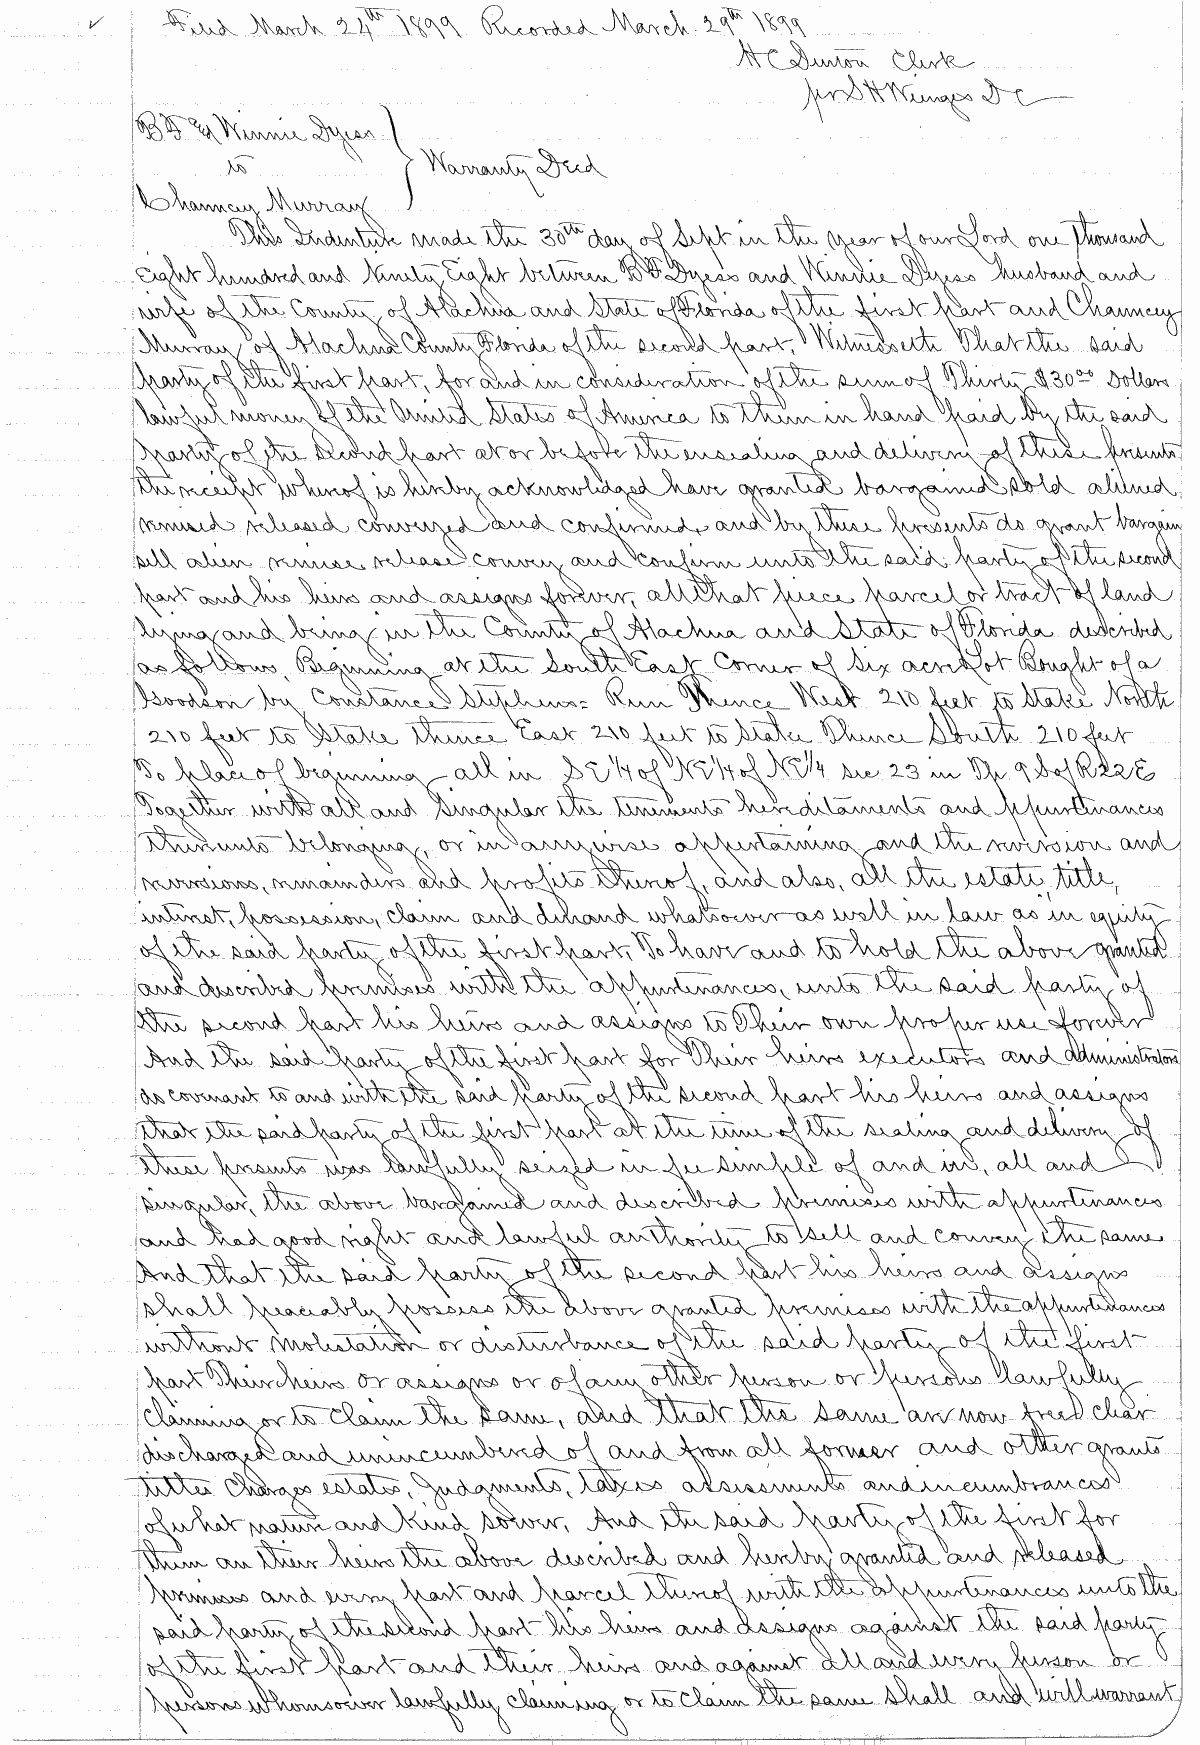 Filed March 24th 1899 Recorded March 29th 1899
H C Denton Clerk
pr S H Wienges D C
B F & Winnie Dyess
to
Warranty Deed
Chancey Murray
This Indenture made the 30th day of Sept in the year of our Lord one Thousand
Eight hundred and Ninety Eight between B F Dyess and Winnie Dyess husband and
wife of the County of Alachua and State of Florida of the first part and Chancey
Murray of Alachua County Florida of the second part, Witnesseth That the said
party of the first part, for and in consideration of the sum of Thirty $30.00 Dollars
lawful money of the United States of America to them in hand paid by the said
party of the second part at or before the ensealing and delivery of these presents
the receipt whereof is hereby acknowledged have granted bargained sold aliened
remised released conveyed and confirmed, and by these presents do grant bargain
sell alien remise release convey and confirm unto the said party of the second
part and his heirs and assigns forever, all that piece parcel or tract of land
lying and being in the County of Alachua and State of Florida described
as follows, Beginning at the South East Corner of Six acre Lot Bought of a
Goodson by Constance Stephens = Run Thence West 210 feet to Stake North
210 feet to Stake thence East 210 feet to Stake Thence South 210 feet
To place of beginning all in SE 1/4 of NE 1/4 of NE 1/4 sec 23 in Tp 9 S of R 22 E
Together with all and Singular the tenements hereditaments and appurtenances
thereunto belonging, or in anywise appertaining and the reversion and
reversions, remainders and profits thereof, and also, all the estate, title,
interest, possession, claim and demand whatsoever as well in law as in equity
of the said party of the first part, To have and to hold the above granted
and described premises with the appurtenances, unto the said party of
the second part his heirs and assigns to Their own proper use forever
And the said party of the first part for Their heirs executors and administrators
do covenant to and with the said party of the second part his heirs and assigns
that the said party of the first part at the time of the sealing and delivery of
these presents was lawfully seized in fee simple of and in, all and
singular, the above bargained and described premises with appurtenances
and had good right and lawful authority to sell and convey the same
And that the said party of the second part his heirs and assigns
shall peaceably possess the above granted premises with the appurtenances
without molestation or disturbance of the said party of the first
part Their heirs or assigns or of any other person or persons lawfully
claiming or to claim the same, and that the same are now freed clear
discharged and unincumbered of and from all former and other grants
titles charges estates, Judgments, taxes assessments and incumbrances
of what nature and kind soever, And the said party of the first for
them an their heirs the above described and hereby granted and released
premises and every part and parcel thereof with the appurtenances unto the
said party of the second part his heirs and assigns against the said party
of the first part and their heirs and against all and every person or
persons whomsoever lawfully claiming or to claim the same shall and will warrant